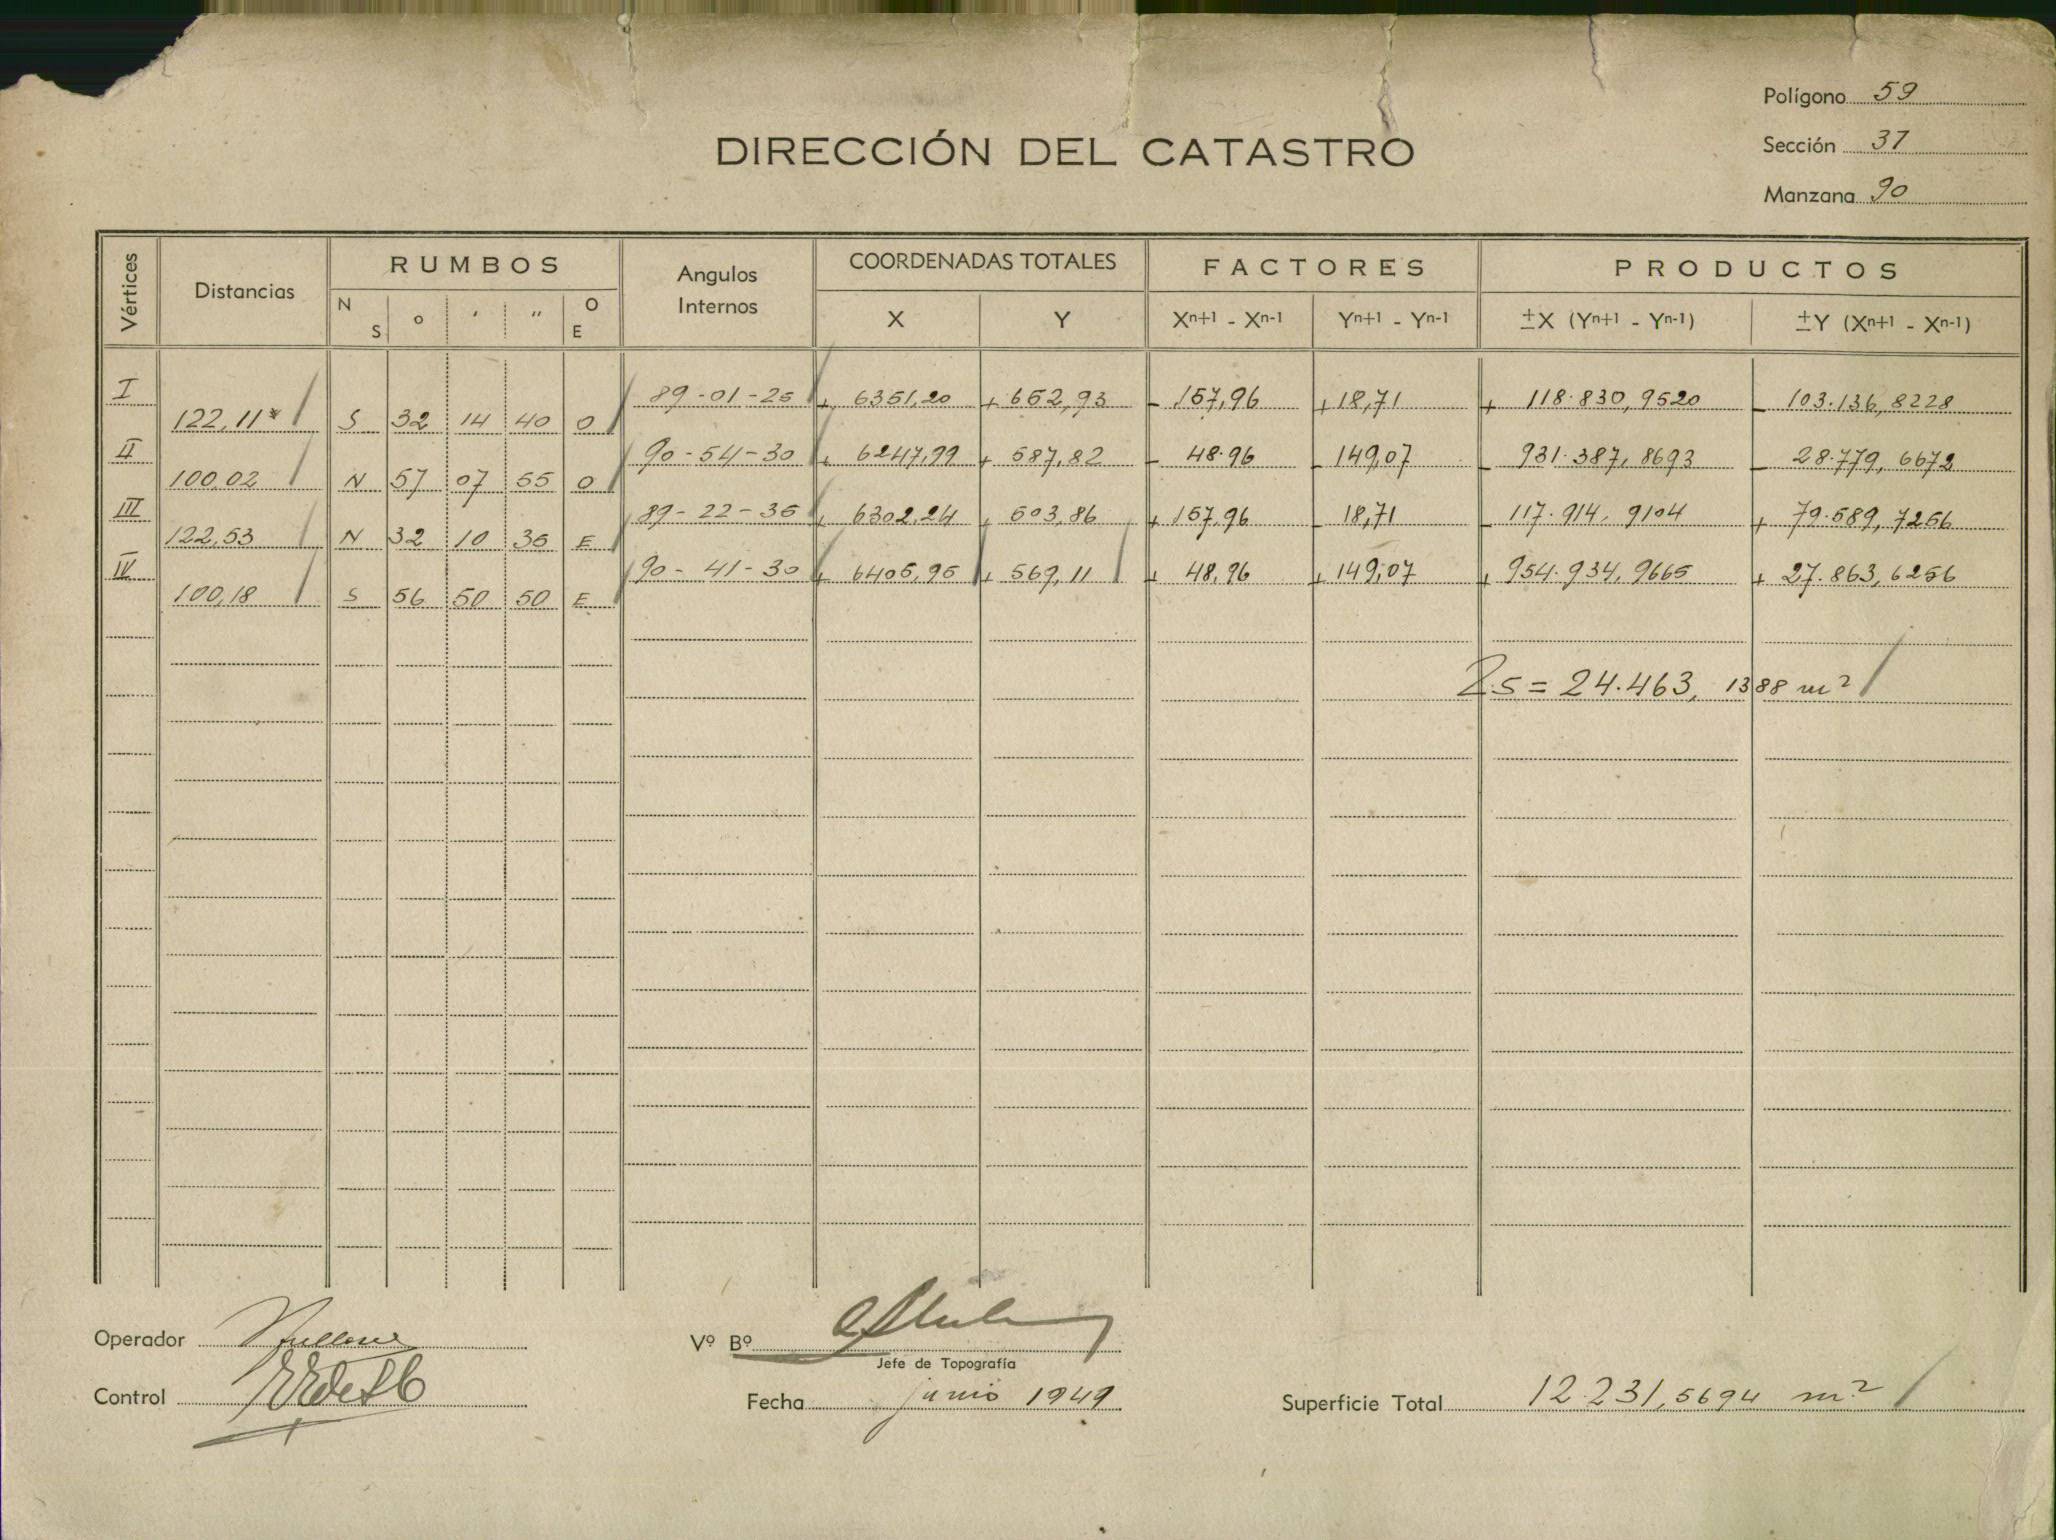 Polígono 59
DIRECCIÓN DEL CATASTRO
Sección 37
Manzana 90
Vértices Distancias RUMBOS Angulos Internos COORDENADAS TOTALES FACTORES PRODUCTOS
N S o ' " O E X Y Xn+1 - Xn-1 Yn+1 - Yn-1 ±X (Yn+1 - Yn-1) ±Y (Xn+1 - Xn-1)
I 89-01-25 + 6351,20 + 652,93 - 157,96 + 18,71 + 118.830,9520 - 103.136,8228
122,11 S 32 14 40 O
II 90-54-30 + 6247,99 + 587,82 - 48.96 - 149,07 - 931.387,8693 - 28.779,6672
100,02 N 57 07 55 O
III 89-22-35 + 6302,24 + 503,86 + 157,96 - 18,71 - 117.914,9104 + 79.589,7256
122,53 N 32 10 35 E
IV 90-41-30 + 6405,95 + 569,11 + 48,96 + 149,07 + 954.934,9665 + 27.863,6256
100,18 S 56 50 50 E
2S = 24.463,1388 m²
Operador
Vº Bº
Jefe de Topografía
Control
Fecha junio 1949
Superficie Total 12.231,5694 m²